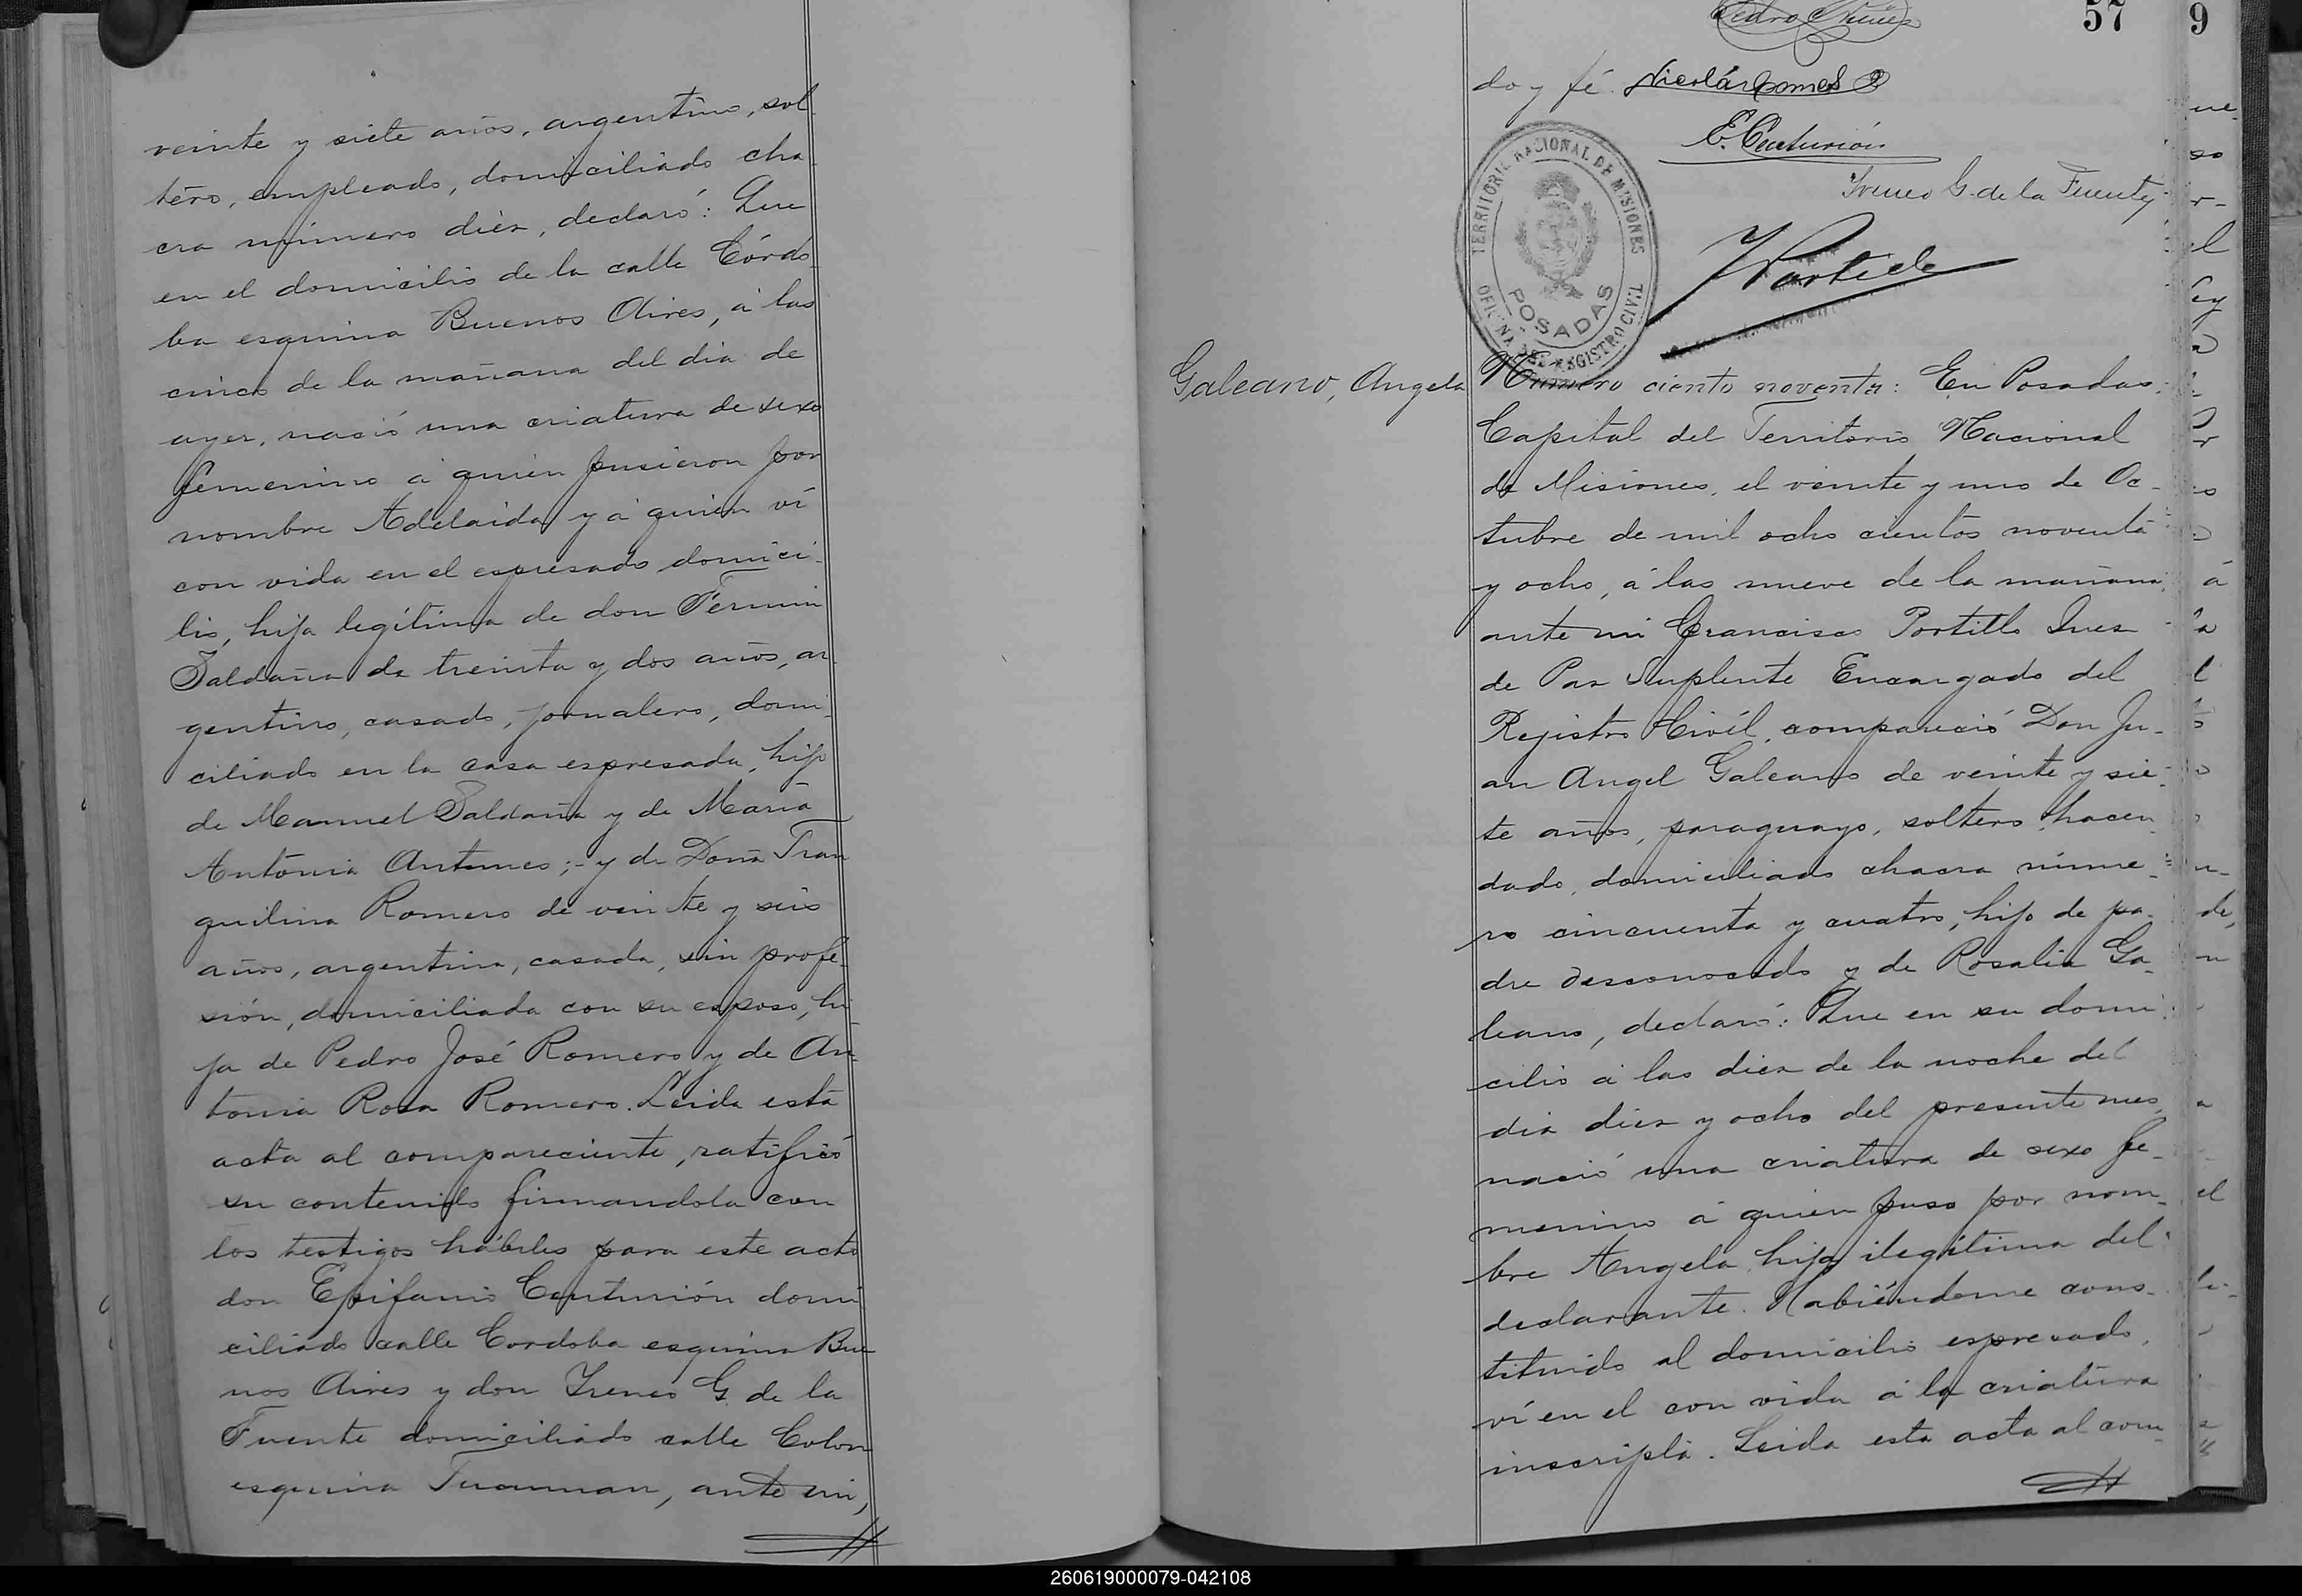 veinte y siete años, argentino, sol
tero, empleado, domiciliado cha
cra número diez, declaró: Que
en el domicilio de la calle Córdo
ba esquina Buenos Aires, á las
cinco de la mañana del dia de
ayer, nació una criatura de sexo
femenino á quien pusieron por
nombre Adelaida y á quien ví
con vida en el espresado domici-
lio, hija legítima de don Fermin
Saldaña de treinta y dos años, ar
gentino, casado, jornalero, domi-
ciliado en la casa espresada, hijo
de Manuel Saldaña y de Maria
Antónia Antunes;- y de Doña Tran
quilina Romero de veinte y seis
años, argentina, casada, sin profe-
sión, domiciliada con su esposo, hi
ja de Pedro José Romero y de An-
tonia Rosa Romero. Leida esta
acta al compareciente, ratificó
su contenido firmandola con
los testigos hábiles para este acto
don Epifanio Centurión domi
ciliado calle Cordoba esquina Bue
nos Aires y don Ireneo G. de la
Fuente domiciliado calle Colon
esquina Tucuman, ante mi,
57
9
doy fé. Nicolás Gomes
E. Centurión
Ireneo G. de la Fuente
TERRITORIO NACIONAL DE MISIONES
OFICINA DEL REGISTRO CIVIL
POSADAS
Galeano, Angela
Número ciento noventa: En Posadas
Capital del Territorio Nacional
de Misiones, el veinte y uno de Oc-
tubre de mil ocho cientos noventa
y ocho, á las nueve de la mañana
ante mi Francisco Portillo Juez
de Paz Suplente Encargado del
Registro Civíl, compareció Don Ju-
an Angel Galeano de veinte y sie-
te años, paraguayo, soltero, hacen
dado, domiciliado chacra núme-
ro cincuenta y cuatro, hijo de pa-
dre desconocido y de Rosalia Ga-
leano, declaró: Que en su domi-
cilio á las diez de la noche del
dia diez y ocho del presente mes,
nació una criatura de sexo fe-
menino á quien puso por nom-
bre Angela, hija ilegítima del
declarante. Habiéndome cons-
tituido al domicilio espresado,
ví en el con vida á la criatura
inscripta. Leida esta acta al com-
260619000079-042108